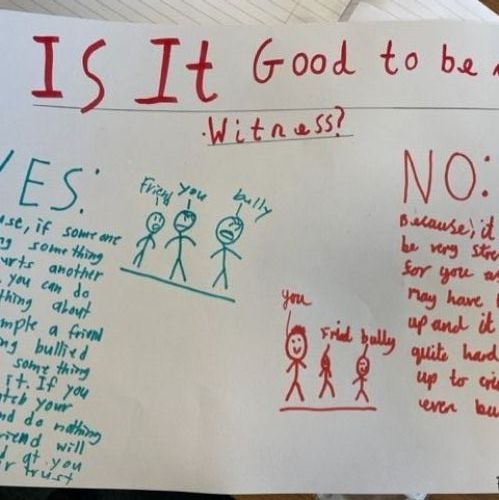 IS It Good to be
Witness?
YES:
Friend you bully
use, if some one
something
urts another
you can do
thing about
mple a friend
ng bullied
some thing
it. If you
your
nd do nothing
riend will
at you
trust
you
Fried bully
NO:
Because, it
be very stre
for you
may have
up and it
quite hard
up to
even bu